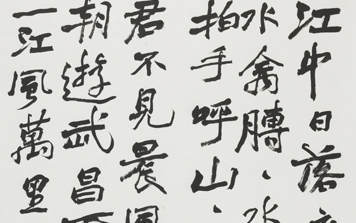 江中日落
水禽膊、水
拍手呼山、
君不見晨
朝遊武昌
一江風萬里